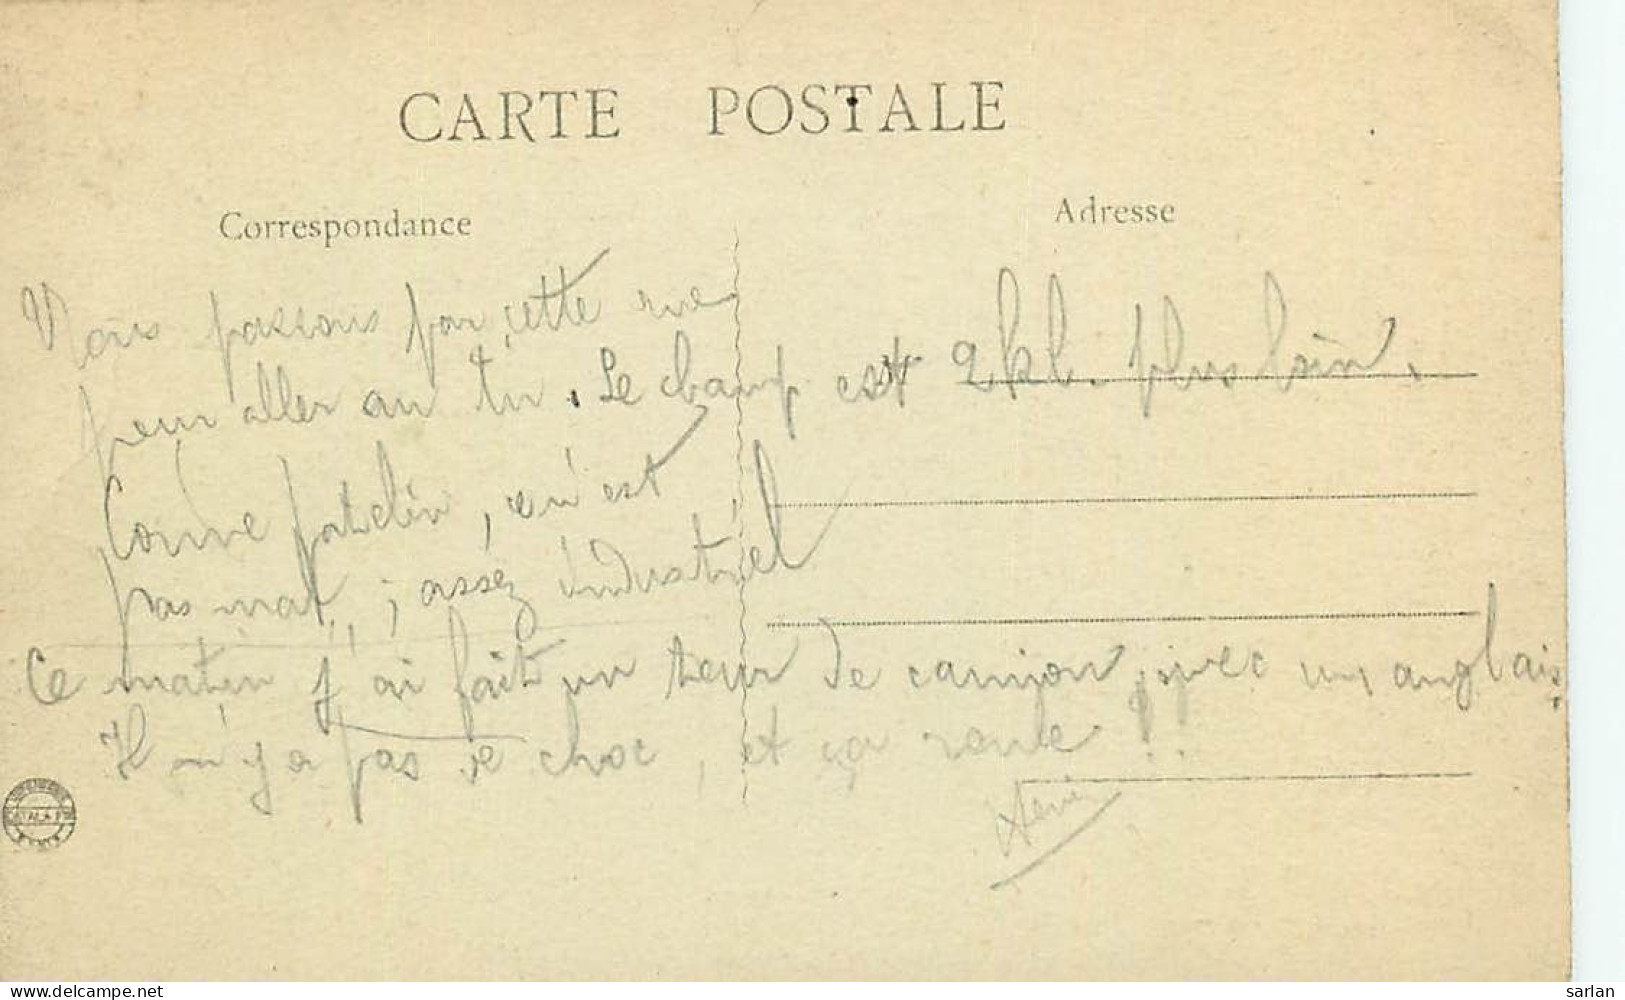 CARTE POSTALE
Correspondance
Adresse
Nous passons par cette rue
pour aller au tir. Le champ est 2 kl. plus loin.
Comme patelin, ça n'est
pas mal, ; assez industriel
Ce matin j'ai fait un tour de camion avec un anglais.
Il n'y a pas de choc, et ça roule !!
www.delcampe.net
sarlan